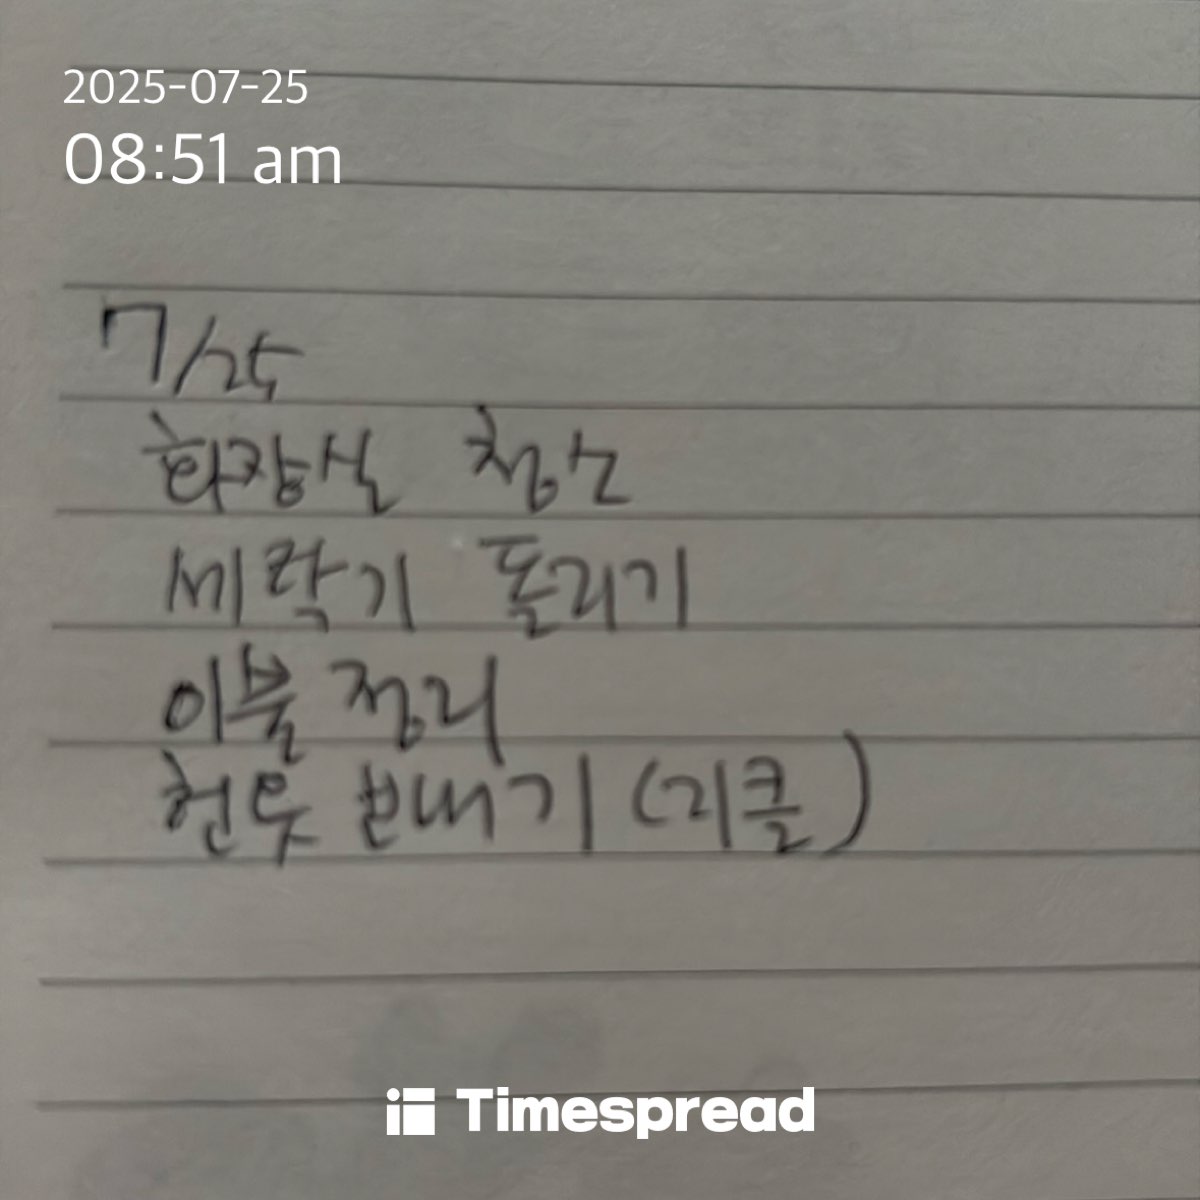 2025-07-25
08:51 am
7/25
화장실 청소
세탁기 돌리기
이불 정리
헌옷 보내기 (리클)
Timespread